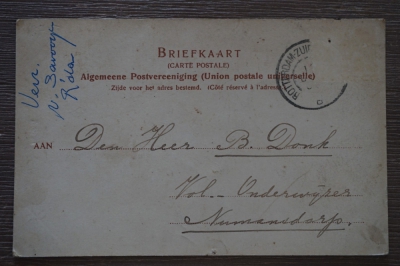 BRIEFKAART
(CARTE POSTALE)
Algemeene Postvereeniging (Union postale universelle)
Zijde voor het adres bestemd. (Côté réservé à l'adresse)
ROTTERDAM-ZUI
AAN Den Heer B. Donk
Vol. Onderwijzer
Numansdorp.